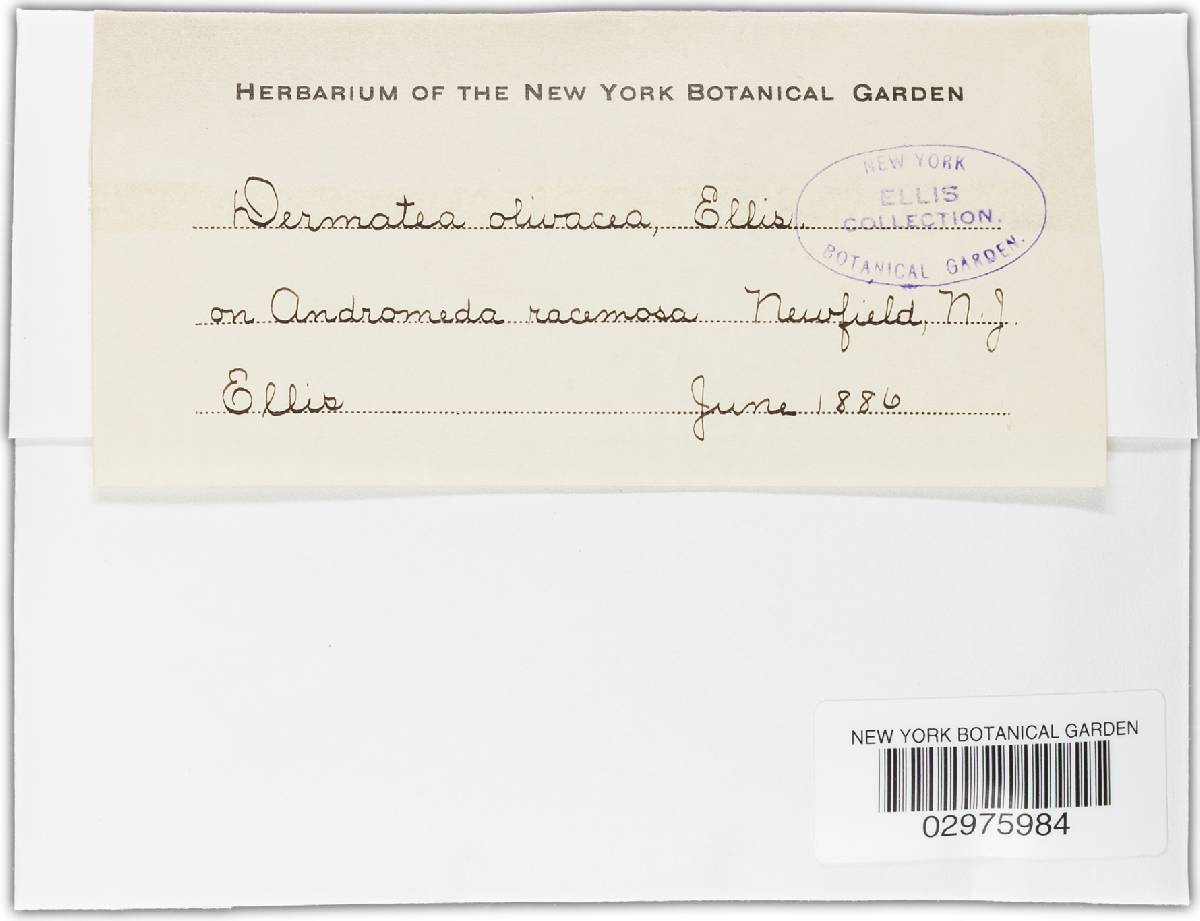 HERBARIUM OF THE NEW YORK BOTANICAL GARDEN
Dermatea olivacea, Ellis.
NEW YORK
ELLIS
COLLECTION.
BOTANICAL GARDEN.
on Andromeda racemosa Newfield, N.J.
Ellis June 1886
NEW YORK BOTANICAL GARDEN
02975984